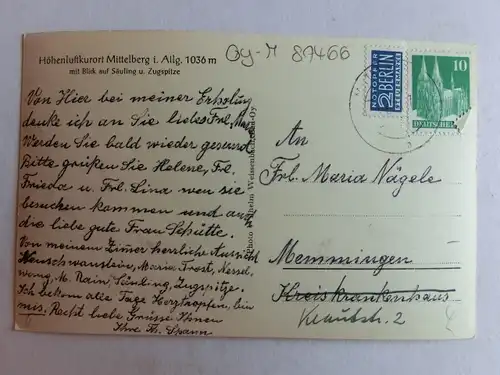 Höhenluftkurort Mittelberg i. Allg. 1036 m
mit Blick auf Säuling u. Zugspitze
Oy-M 87466
NOTOPFER
2 BERLIN
STEUERMARKE
10
DEUTSCHE
Von Hier bei meiner Erholung
denke ich an Sie liebes Frl. May
Werden Sie bald wieder gesund
Bitte grüßen Sie Helene, Frl.
Frieda u. Frl. Lina wen sie
besuchen kommen und auch
die liebe gute Frau Schütte.
Von meinem Zimer herrliche Aussicht
Neuschwanstein, Maria Trost, Nessel
wang, M. Rain, Säuling, Zugspitze.
Ich bekom alle Tage Herztropfen, bin
mis. Recht liebe Grüsse Ihnen
Ihre Th. Spann
Photo Wilhelm
An
Frl. Maria Nägele
Memmingen
Kreiskrankenhaus
Krautstr. 2